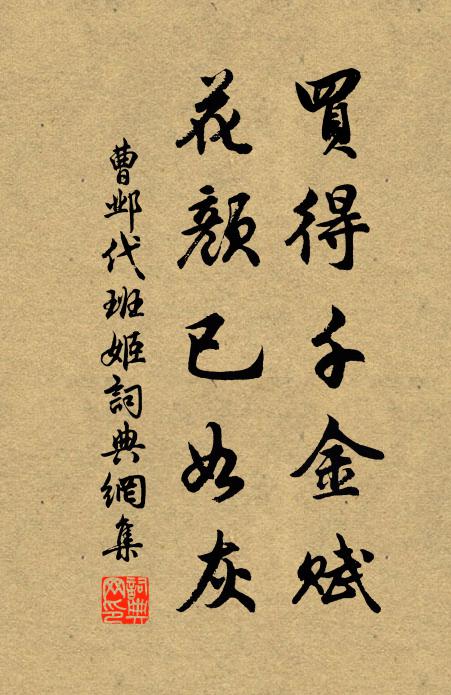 買得千金賦
花顏已如灰
曹邺代班姬詞典網集
詞典网印